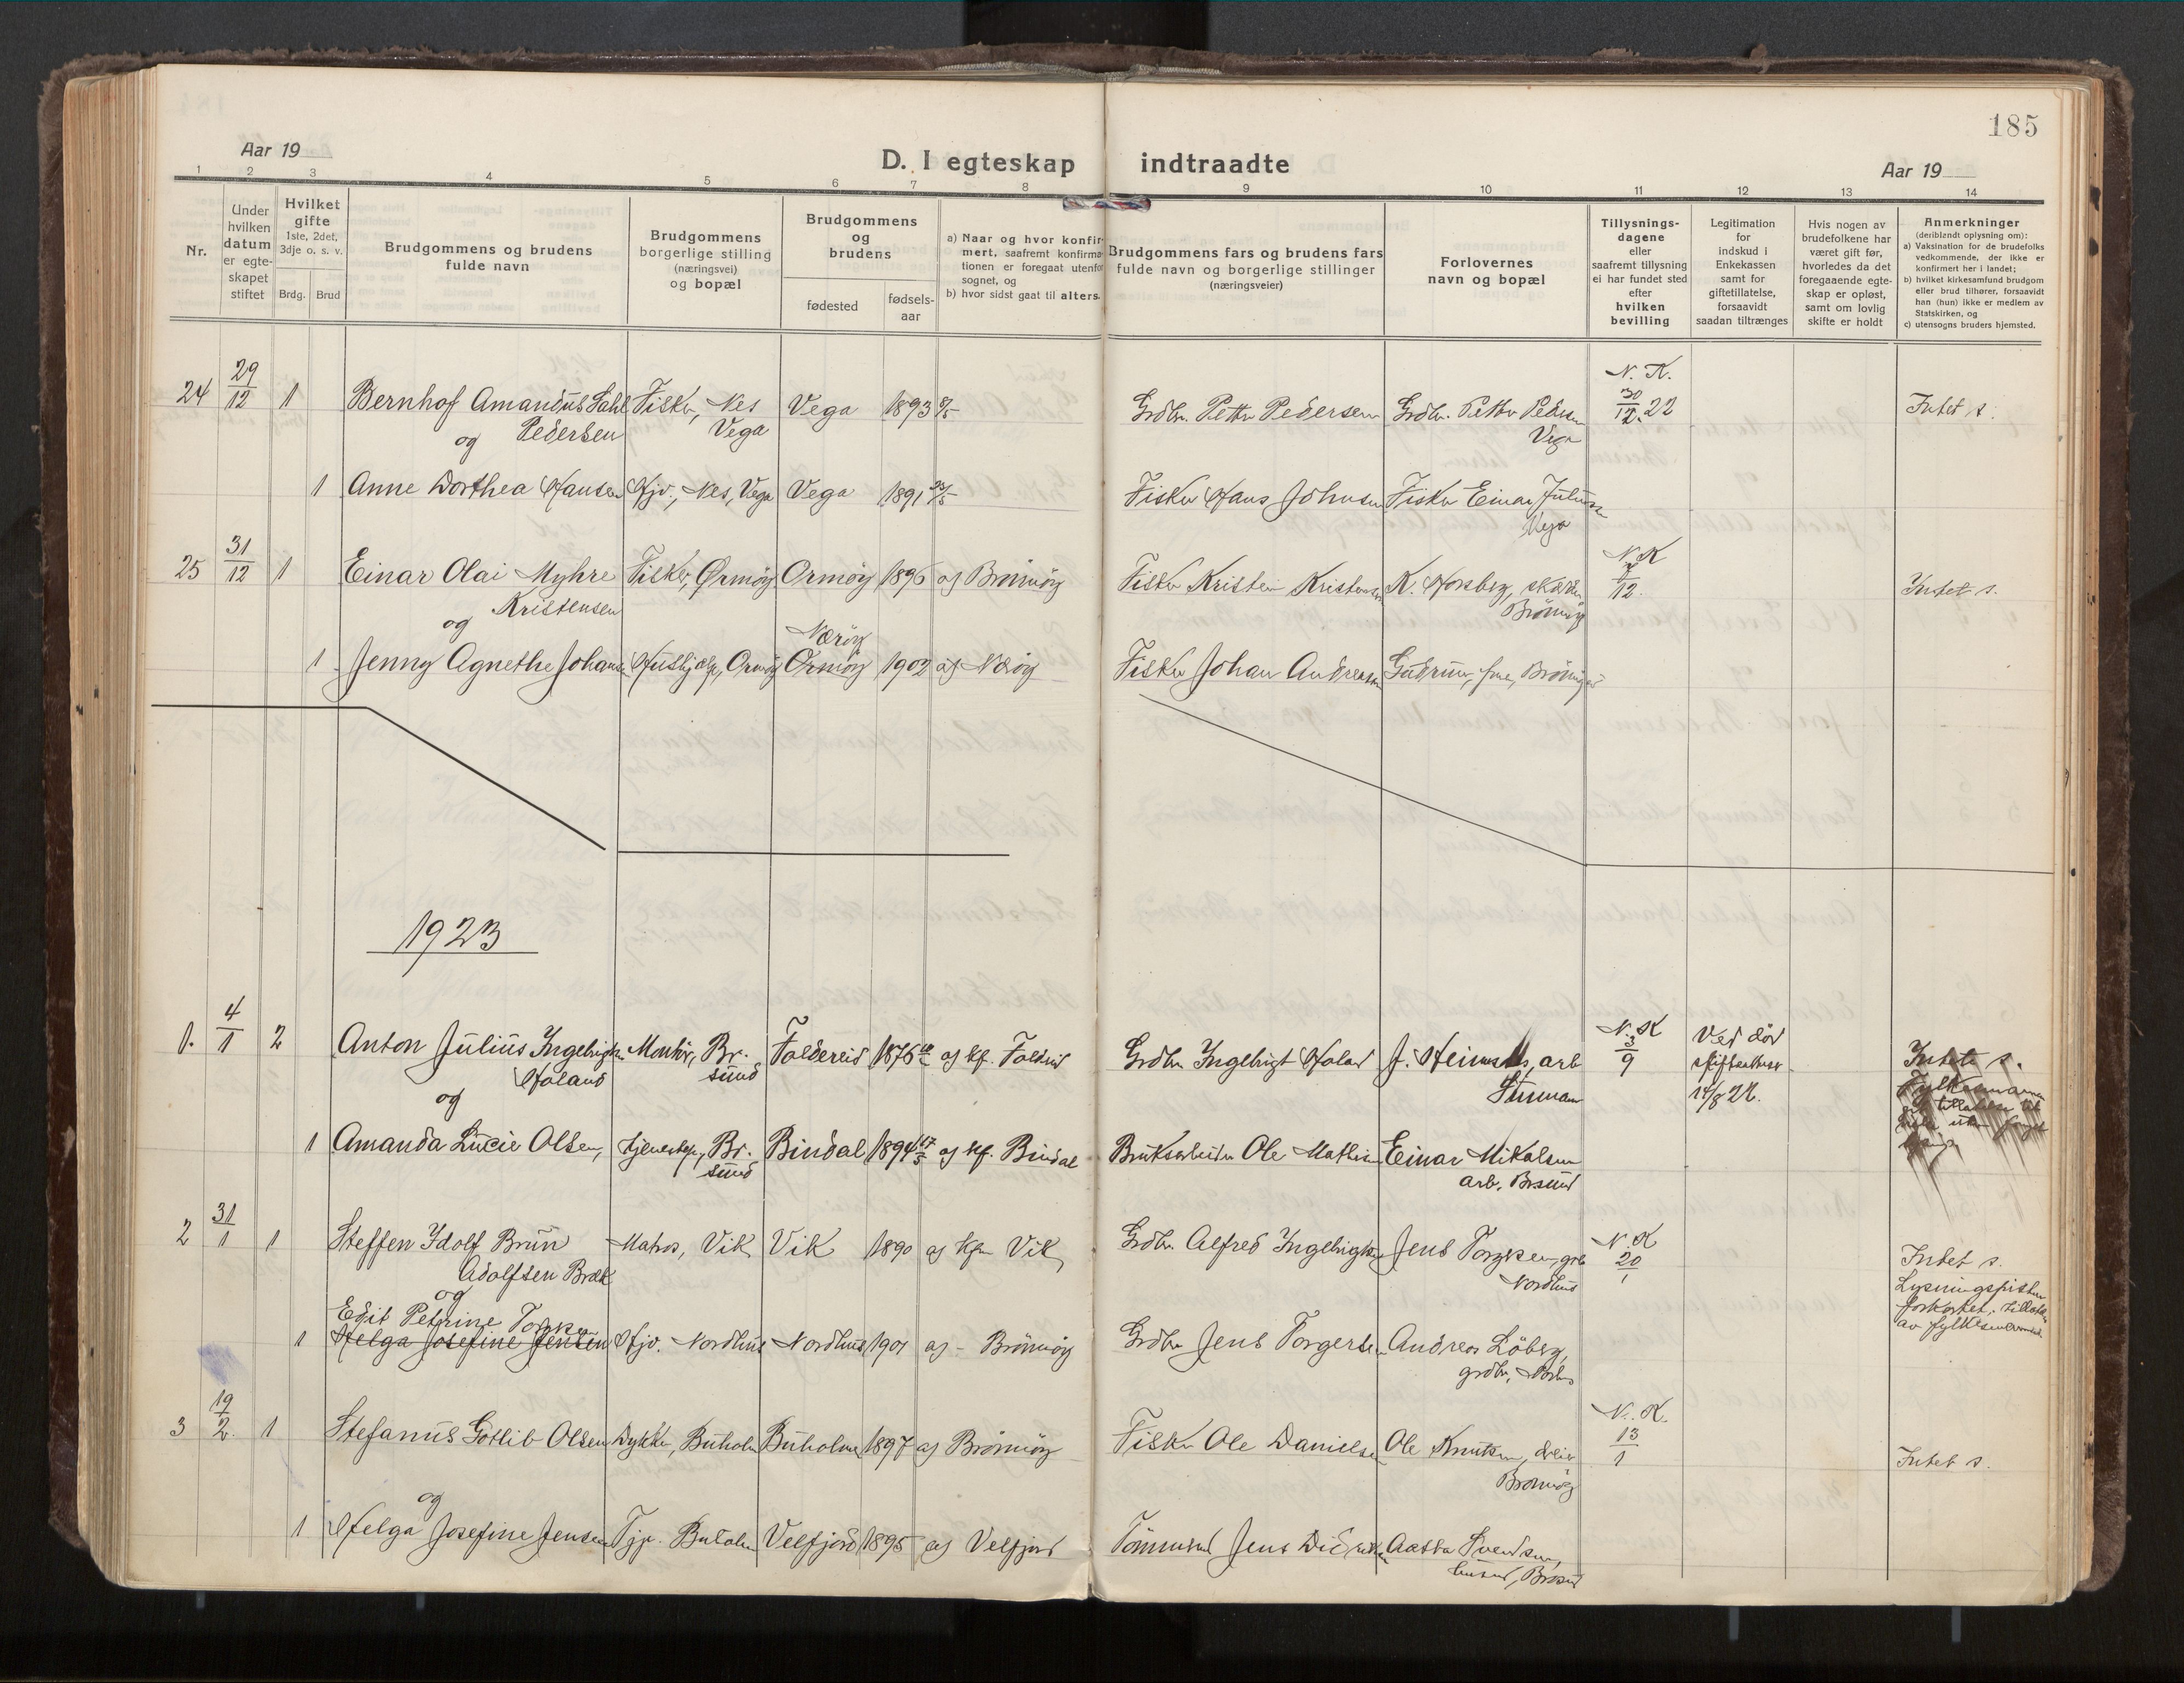 185
Aar 19
D. I egteskap indtraadte
Aar 19
1 2 3 4 5 6 7 8 9 10 11 12 13 14
Nr.
Under hvilken datum er egteskapet stiftet
Hvilket gifte 1ste, 2det, 3dje o. s. v.
Brdg. Brud
Brudgommens og brudens fulde navn
Brudgommens borgerlige stilling (næringsvei) og bopæl
Brudgommens og brudens
fødested
fødsels-aar
a) Naar og hvor konfirmert, saafremt konfirmationen er foregaat utenfor sognet, og
b) hvor sidst gaat til alters.
Brudgommens fars og brudens fars fulde navn og borgerlige stillinger (næringsveier)
Forlovernes navn og bopæl
Tillysnings-dagene eller saafremt tillysning ei har fundet sted efter hvilken bevilling
Legitimation for indskud i Enkekassen samt for giftetillatelse, forsaavidt saadan tiltrænges
Hvis nogen av brudefolkene har været gift før, hvorledes da det foregaaende egteskap er opløst, samt om lovlig skifte er holdt
Anmerkninger (deriblendt oplysning om):
a) Vaksination for de brudefolks vedkommende, der ikke er konfirmert her i landet;
b) hvilket kirkesamfund brudgom eller brud tilhører, forsaavidt han (hun) ikke er medlem av Statskirken, og
c) utensogns bruders hjemsted.
24 29/12 1 Bernhof Amandus Dahl Fisker, Nes Vega 1893 Grdbr. Petter Pedersen Grdbr. Petter Pedersen N. K. 30/12. 22 Intet s.
og Pedersen Vega Vega
1 Anne Dorthea Hansen Hjv., Nes, Vega Vega 1891 Fisker Hans Johnsen Fisker Einar Juliussen
Vega
25 31/12 1 Einar Olai Myhre Fisker, Ormøy Ormøy 1896 af Brønnøy Fisker Kristen Kristensen K. Horsberg, N. K 12. Intet s.
og Kristensen Brønnøy
Nærøy
1 Jenny Agnethe Johansen Hushjælp, Ormøy Ormøy 1902 af Nærøy Fisker Johan Andreassen Gudrun, frue, Brønnøy
1923
1. 4/1 2 Anton Julius Ingebrigtsen Montør, Br. Foldereid 1876 af kf. Foldereid Grdbr Ingebrigt Holand arb N. K 3/9 Ved død Intet s.
Holand sund 14/8 22.
og
1 Amanda Lucie Olsen, Br. Bindal 1894 17/5 af kf. Bindal Bruksarbeider Ole Mathisen Einar Mikalsen
sund arb. Brsund
2 31/1 1 Steffen Idolf Brun Matros, Vik Vik 1890 af kfm Vik Grdbr. Alfred Ingebrigtsen Jens Torgersen, N. K 20/1 Intet s.
Adolfsen Bræk Nordhus Lysningsfristen
og forkortet,
Edit Petrine Torgersen av fylkesmannen
1 Helga Josefine Jensen Hjv. Nordhus Nordhus 1901 af - Brønnøy Grdbr Jens Torgersen Andreas Løberg,
grdbr,
3 19/2. 1 Stefanus Gotlib Olsen Dykker, Buholm Buholmen 1897 af Brønnøy Fisker Ole Danielsen Ole Knutsen, N. K. 13/1 Intet s.
Brønnøy
og
1 Helga Josefine Jensen Tjp. Buholm Velfjord 1895 af Velfjord Tømmermand Jens Aasta Svendsen,
Brsund